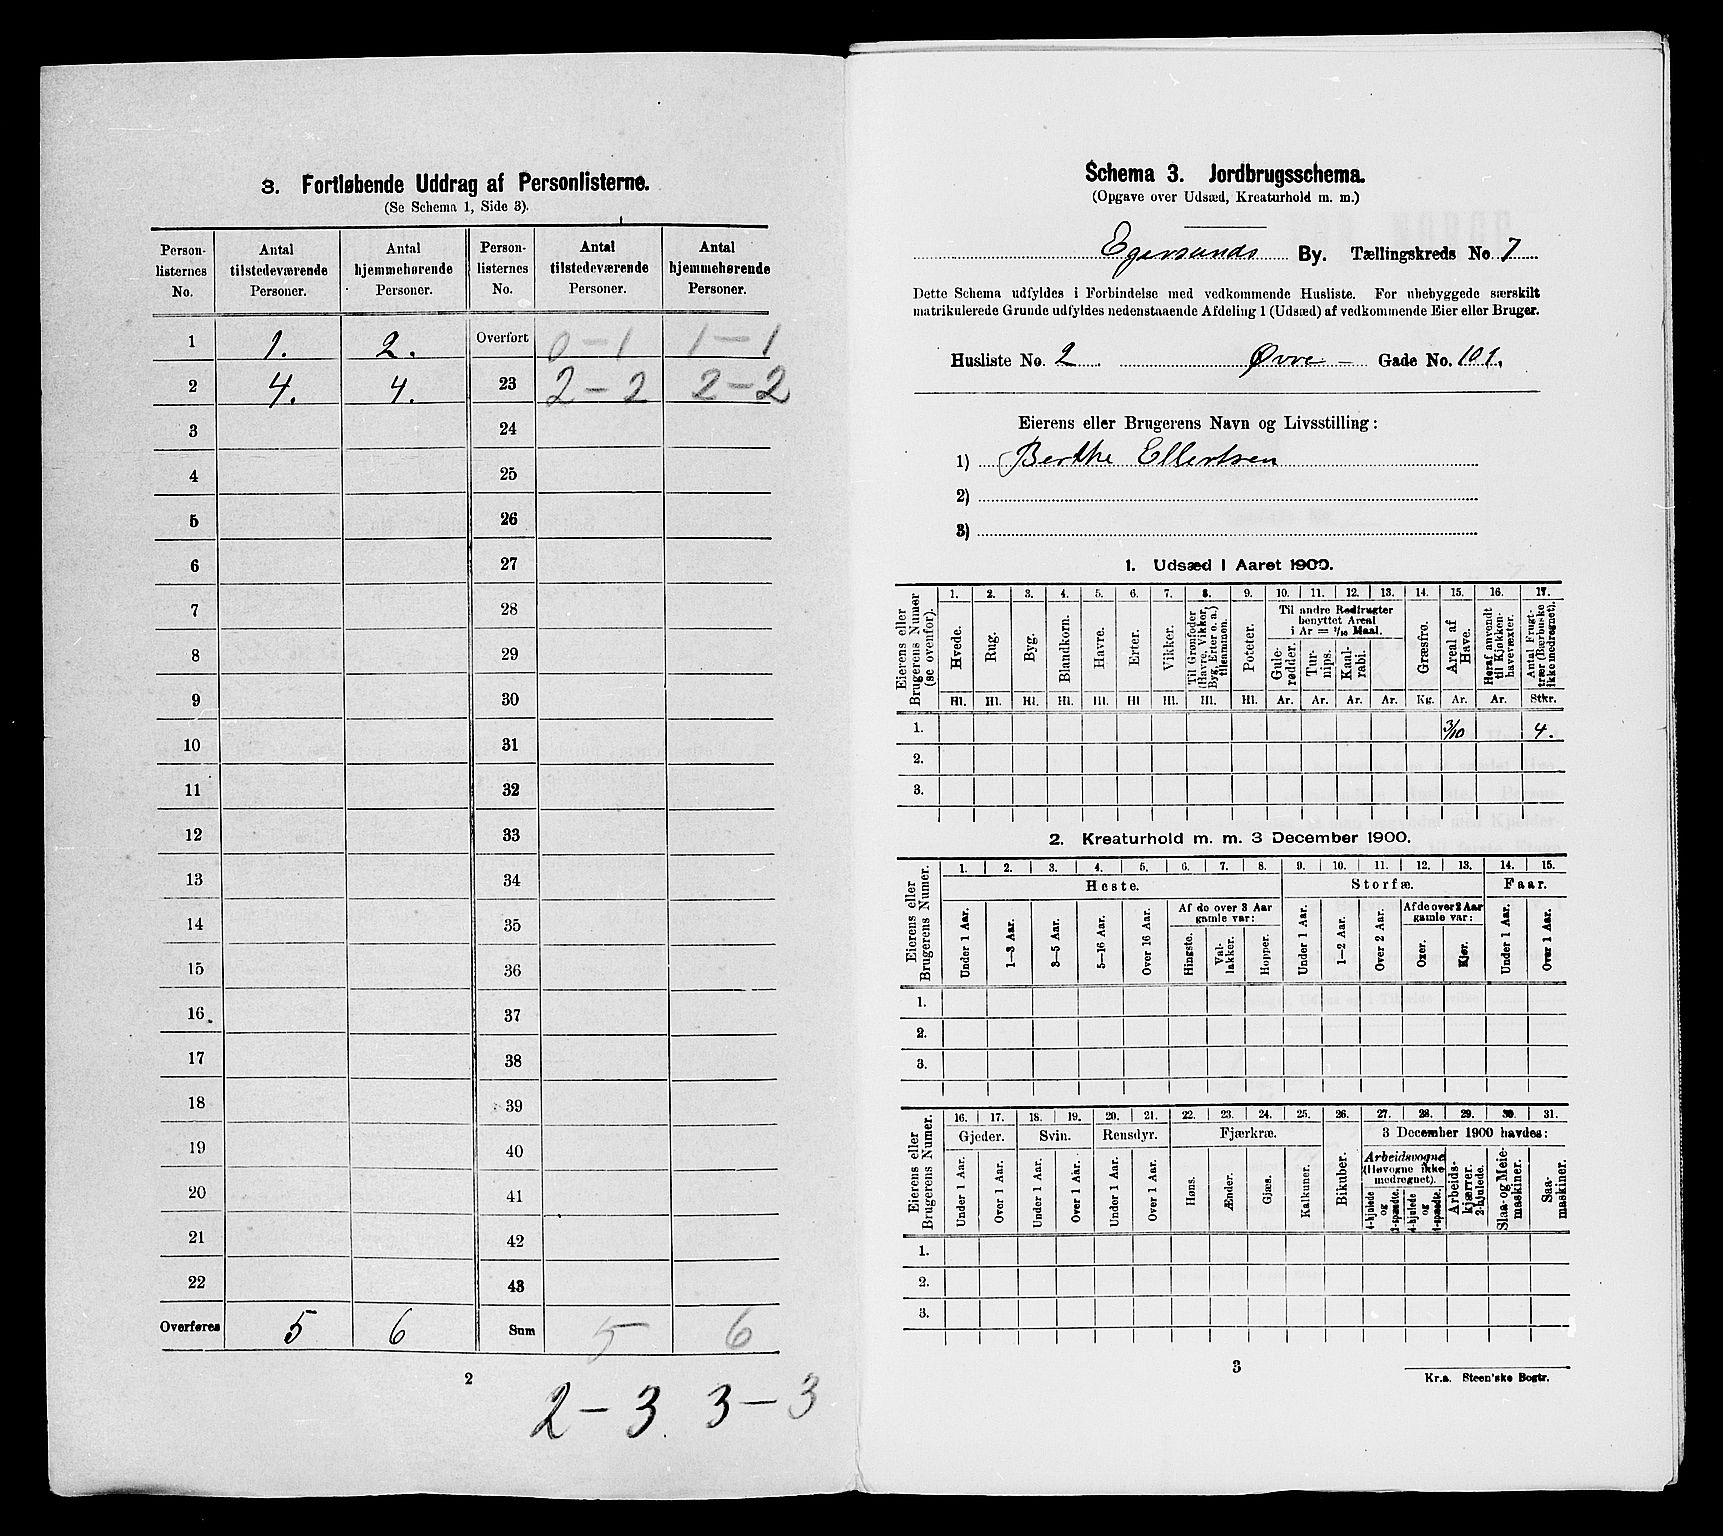 3. Fortløbende Uddrag af Personlisterne.
(Se Schema 1, Side 3).
Person-
listernes
No.
Antal
tilstedeværende
Personer.
Antal
hjemmehørende
Personer.
Person-
listernes
No.
Antal
tilstedeværende
Personer.
Antal
hjemmehørende
Personer.
1 1. 2. Overført 0 – 1 1 – 1
2 4. 4. 23 2 – 2 2 – 2
3 24
4 25
5 26
6 27
7 28
8 29
9 30
10 31
11 32
12 33
13 34
14 35
15 36
16 37
17 38
18 39
19 40
20 41
21 42
22 43
Overføres 5 6 Sum 5 6
2
2 – 3. 3 – 3
Schema 3. Jordbrugsschema.
(Opgave over Udsæd, Kreaturhold m. m.)
Egersunds By. Tællingskreds No 7
Dette Schema udfyldes i Forbindelse med vedkommende Husliste. For ubebyggede særskilt
matrikulerede Grunde udfyldes nedenstaaende Afdeling 1 (Udsæd) af vedkommende Eier eller Bruger.
Husliste No. 2 Øvre – Gade No. 101.
Eierens eller Brugerens Navn og Livsstilling:
1) Berthe Ellertsen
2)
3)
1. Udsæd i Aaret 1900.
Eierens eller
Brugerens Numer
(se ovenfor).
1. 2. 3. 4. 5. 6. 7. 8. 9. 10. 11. 12. 13. 14. 15. 16. 17.
Hvede.
Rug.
Byg.
Blandkorn.
Havre.
Erter.
Vikker.
Til Grønfoder
(Havre, Vikker,
Byg, Erter o. a.)
tilsammen.
Poteter.
Til andre Rodfrugter
benyttet Areal
i Ar = 1/10 Maal.
Gule-
rødder.
Tur-
nips.
Kaal-
rabi.
Græsfrø.
Areal af
Have.
Heraf anvendt
til Kjøkken-
havevæxter.
Antal Frugt-
trær (Bærbuske
ikke medregnet).
Hl. Hl. Hl. Hl. Hl. Hl Hl. Hl. Hl. Ar. Ar. Ar. Ar. Kg. Ar. Ar. Stkr.
1. 3/10 4.
2.
3.
2. Kreaturhold m. m. 3 December 1900.
Eierens eller
Brugerens Numer.
1. 2. 3. 4. 5. 6. 7. 8. 9. 10. 11. 12. 13. 14. 15.
Heste. Storfæ. Faar.
Under 1 Aar.
1–3 Aar.
3–5 Aar.
5–16 Aar.
Over 16 Aar.
Af de over 3 Aar
gamle var:
Hingste.
Val-
lakker.
Hopper.
Under 1 Aar.
1–2 Aar.
Over 2 Aar.
Af de over 2 Aar
gamle var:
Oxer.
Kjør.
Under 1 Aar.
Over 1 Aar.
1.
2.
3.
Eierens eller
Brugerens Numer.
16. 17. 18. 19. 20. 21. 22. 23. 24. 25. 26. 27. 28. 29. 30. 31.
Gjeder. Svin. Rensdyr. Fjærkræ. 3 December 1900 havdes:
Under 1 Aar.
Over 1 Aar.
Under 1 Aar.
Over 1 Aar.
Under 1 Aar.
Over 1 Aar.
Høns.
Ænder.
Gjæs.
Kalkuner.
Bikuber.
Arbeidsvogne
(Høvogne ikke
medregnet).
4-hjulede
og
2-spændte.
4-hjulede
og
1-spændte.
Arbeids-
kjærrer,
2-hjulede.
Slaa- og Meie-
maskiner.
Saa-
maskiner.
1.
2.
3.
3
Kr.a. Steen'ske Bogtr.